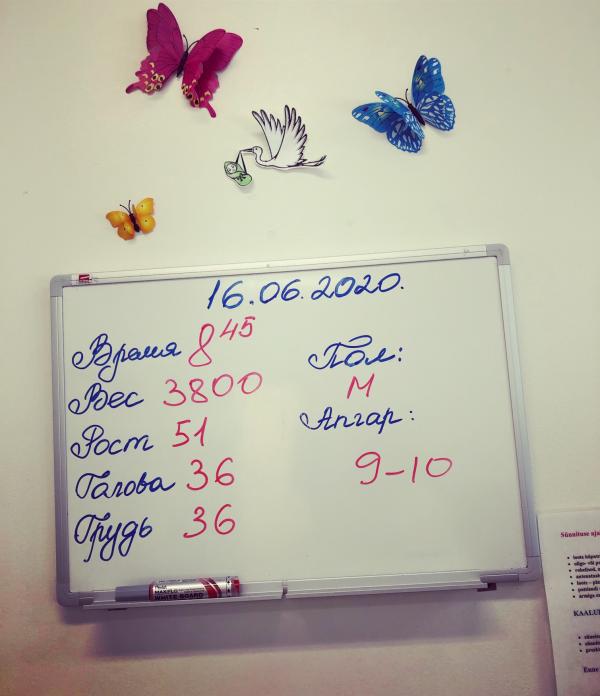 16.06.2020.
Время 8 45
Вес 3800
Рост 51
Голова 36
Грудь 36
Пол:
М
Апгар:
9-10
MAXIFLO
WHITE BOARD
Sünnituse aja
KAALU
Enne